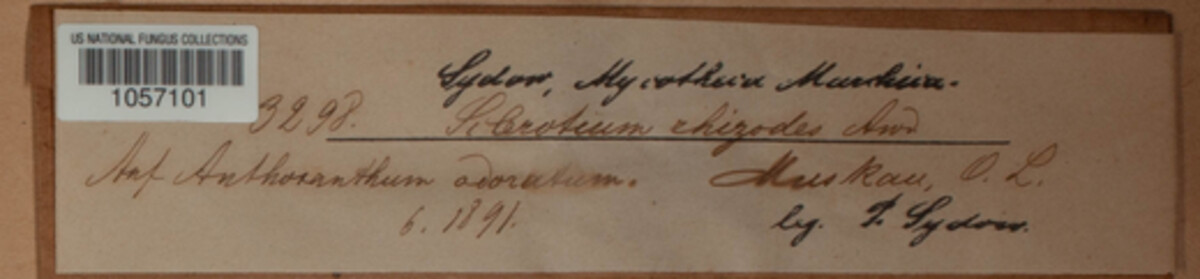 US NATIONAL FUNGUS COLLECTIONS
1057101
Sydow, Mycotheca Marchica.
3298. Sclerotium rhizodes Awd
Auf Anthoxanthum odoratum. Muskau, O. L.
6. 1891. leg. P. Sydow.